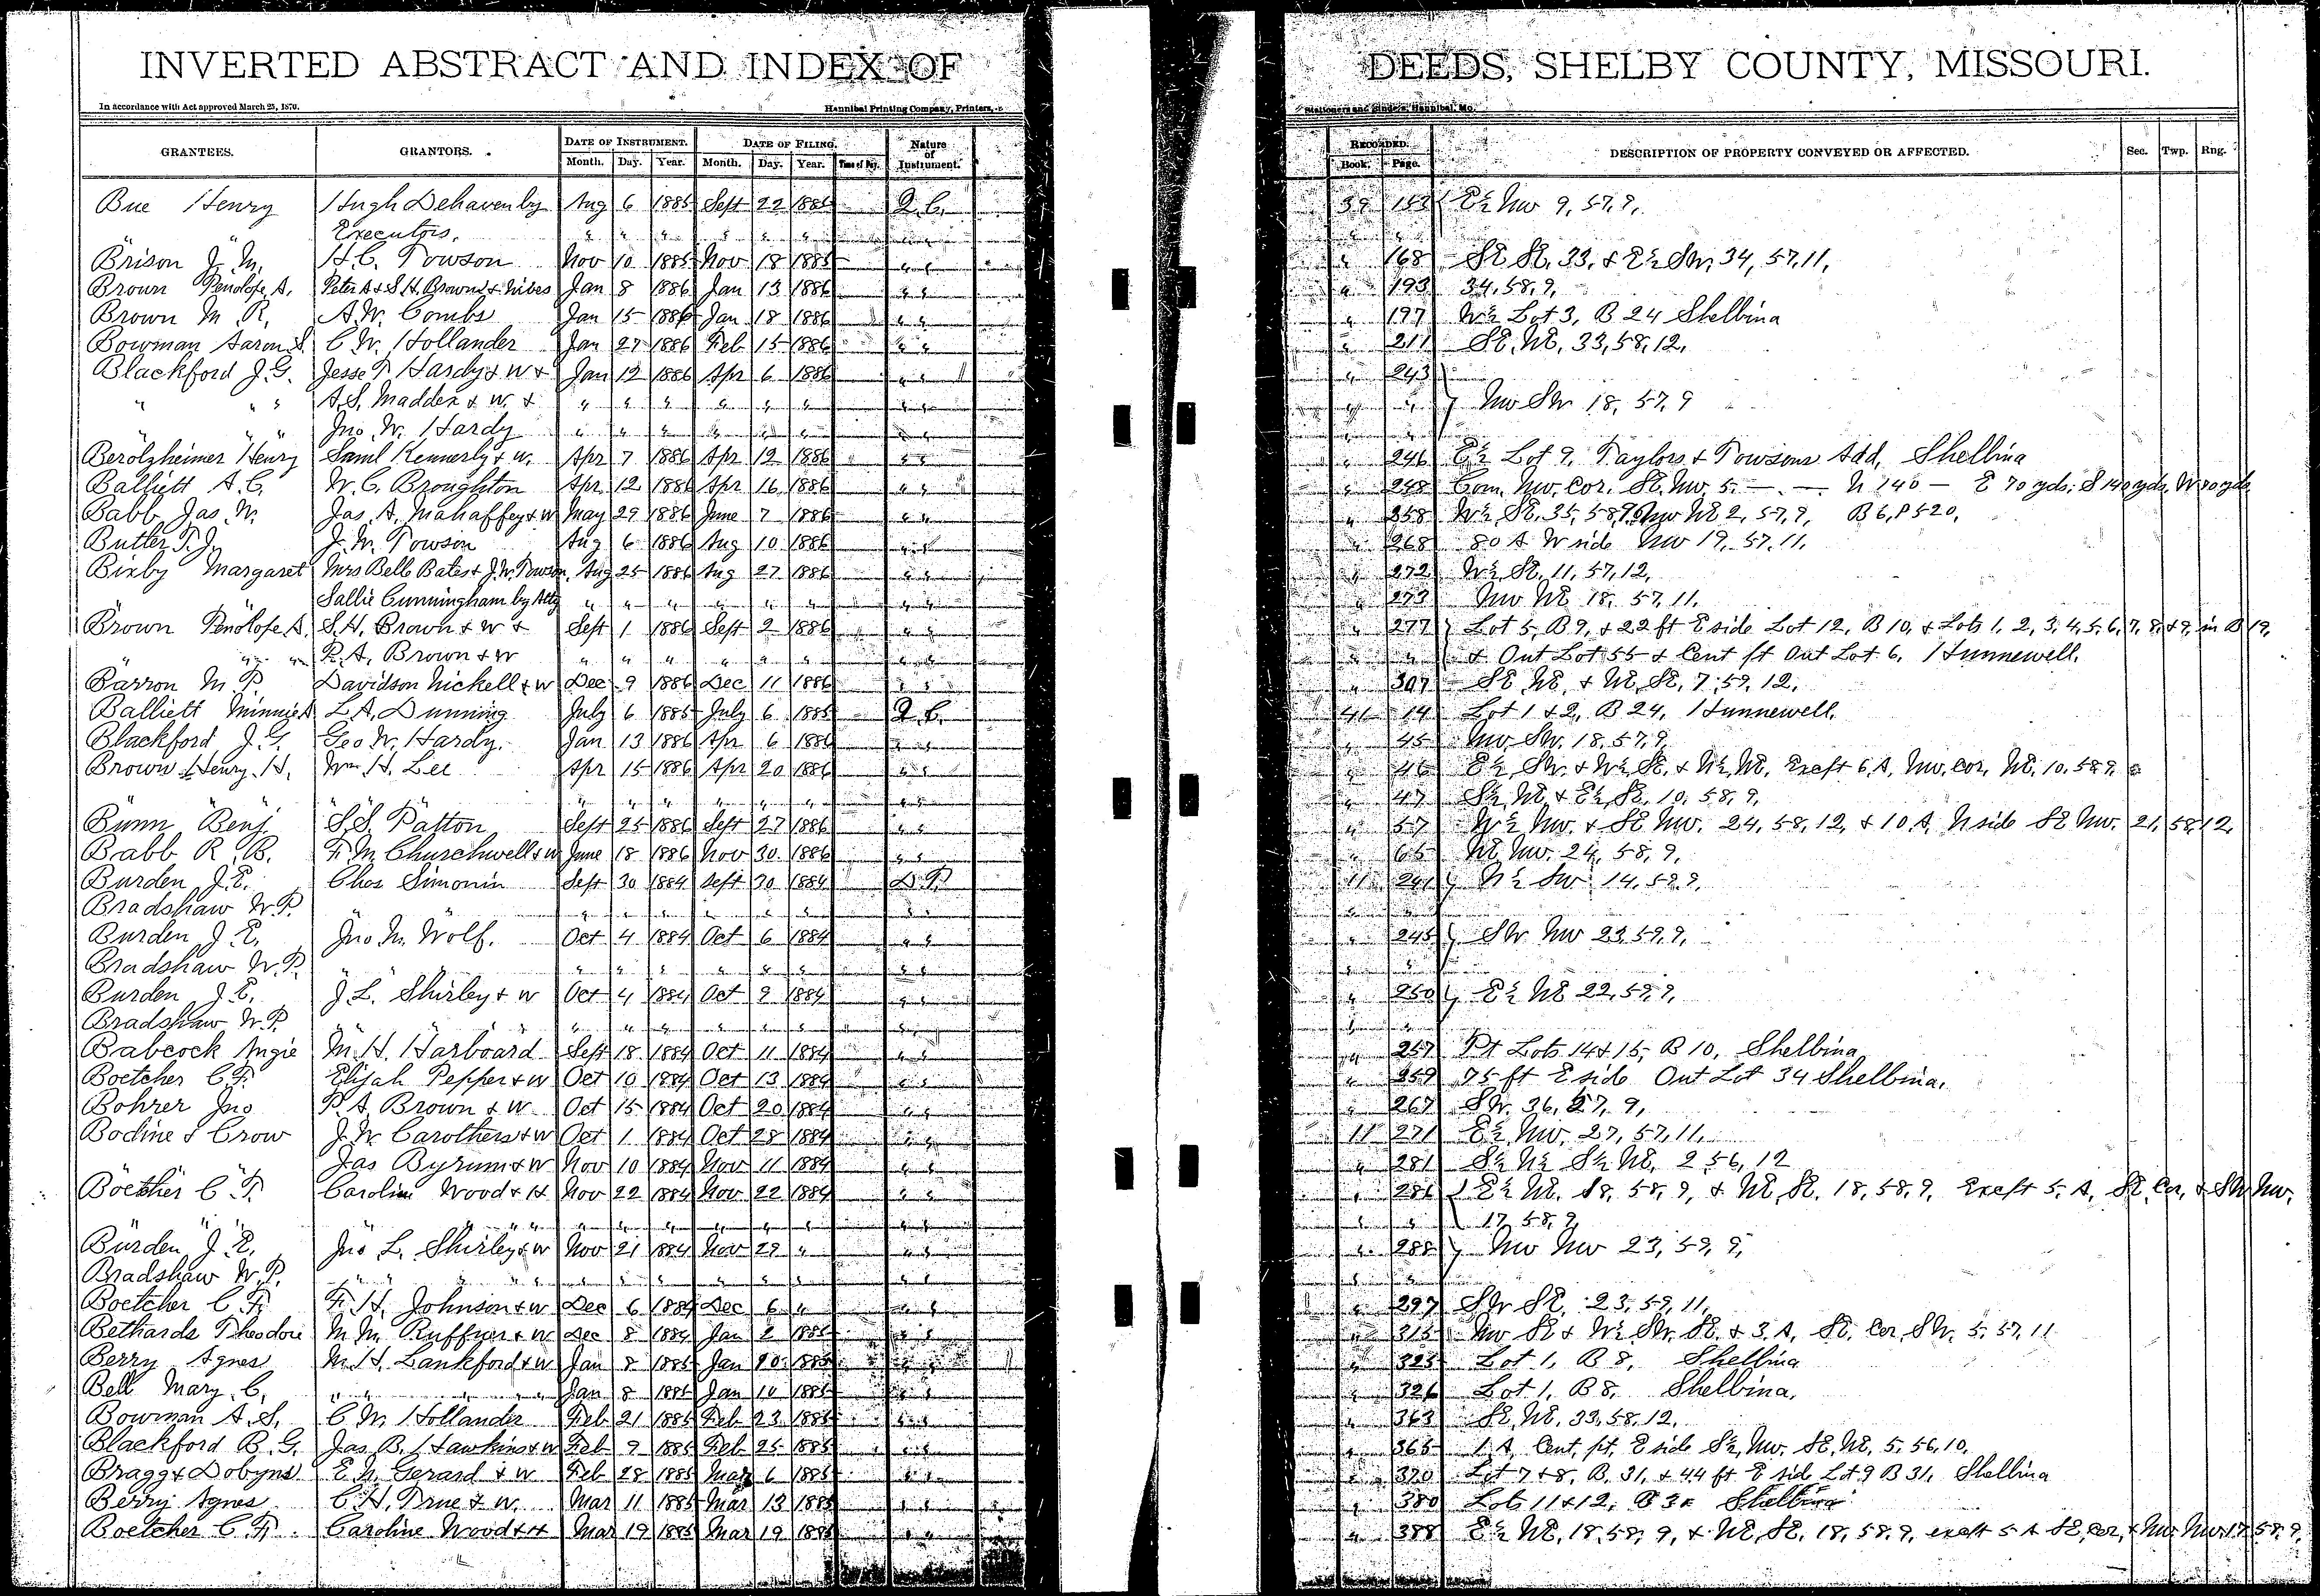 INVERTED ABSTRACT AND INDEX OF DEEDS, SHELBY COUNTY, MISSOURI.
In accordance with Act approved March 25, 1870. Hannibal Printing Company, Printers, Stationers and Binders, Hannibal, Mo.
GRANTEES. GRANTORS. DATE OF INSTRUMENT. Month. Day. Year. DATE OF FILING. Month. Day. Year. Time of Day. Nature of Instrument. RECORDED. Book. Page. DESCRIPTION OF PROPERTY CONVEYED OR AFFECTED. Sec. Twp. Rng.
Bue Henry Hugh Dehaven by Aug 6 1885 Sept 22 1885 Q.C. 39 153 E½ NW 9, 57, 9,
" " Executors, " " " " " "
Brison J. M. H. C. Towson Nov 10 1885 Nov 18 1885 " " " 168 SE SE, 33, & E½ SW, 34, 57, 11,
Brown Penolofe A. Peter A & S. H. Browns & Wives Jan 8 1886 Jan 13 1886 " " " 193 34, 58, 9,
Brown M. R. A. W. Combs Jan 15 1886 Jan 18 1886 " " " 197 W½ Lot 3, B 24 Shelbina
Bowman Aaron S. C. W. Hollander Jan 27 1886 Feb 15 1886 " " " 211 SE, NE, 33, 58, 12,
Blackford J. G. Jesse P. Hardy & W & Jan 12 1886 Apr 6 1886 " " " 243
" " " A. S. Madden & W. & " " " " " " " " " " NW SW 18, 57, 9
" " " Jno. W. Hardy " " " " " " " " " "
Berolzheimer Henry Saml Kennerly & W. Apr 7 1886 Apr 12 1886 " " " 246 E½ Lot 9, Taylors & Towsons Add, Shelbina
Balliett A. C. W. C. Broughton Apr 12 1886 Apr 16 1886 " " " 248 Com. NW. Cor. SE. NW. 5. — . — N 140 — E 70 yds. S 140 yds, W 70 yds
Babb Jas. W. Jas. A. Mahaffey & W May 29 1886 June 7 1886 " " " 258 W½ SE. 35, 58, 9, NW NE 2, 57, 9, B 6, P 520,
Butler T. J. J. M. Towson Aug 6 1886 Aug 10 1886 " " " 268 80 A W side NW 19, 57, 11,
Bixby Margaret Mrs Belle Bates & J. W. Towson, Aug 25 1886 Aug 27 1886 " " " 272 W½ SE, 11, 57, 12,
Sallie Cunningham by Atty " " " " " " " " " 273 NW NE 18, 57, 11.
Brown Penolofe A. S. H. Brown & W & Sept 1 1886 Sept 2 1886 " " " 277 Lot 5, B 9, & 22 ft E side Lot 12, B 10, & Lots 1, 2, 3, 4, 5, 6, 7, 8, & 9, in B 19,
" " P. A. Brown & W " " " " " " " " " " & Out Lot 55 & Cent pt Out Lot 6, Hunnewell.
Barron M. P. Davidson Nickell & W Dec 9 1886 Dec 11 1886 " " " 307 SE NE, & NE, SE, 7, 59, 12,
Balliett Minnie A L. A. Dunning July 6 1885 July 6 1885 Q. C. 41 14 Lot 1 & 2, B 24, Hunnewell,
Blackford J. G. Geo. W. Hardy. Jan 13 1886 Apr 6 1886 " " " 45 NW. SW. 18, 57, 9,
Brown Henry H. Wm. H. Lee Apr 15 1886 Apr 20 1886 " " " 46 E½ SW. & W½ SE. & N½ NE, Exept 6 A, NW. Cor, NE, 10, 58, 9,
" " " " " " " " " " " " " " 47 S½ NE & E½ SE, 10, 58, 9,
Bunn Benj S. S. Patton Sept 25 1886 Sept 27 1886 " " " 57 W½ NW. & SE NW. 24, 58, 12, & 10 A, N side SE NW. 21, 58, 12,
Babb R. B. F. M. Churchwell & W June 18 1886 Nov 30 1886 " " " 65 NE NW. 24, 58, 9,
Burden J. E. Chas Simonin Sept 30 1884 Sept 30 1884 D. T. 11 241 N½ SW 14, 59, 9,
Bradshaw W. P. " " " " " " " " " "
Burden J. E. Jno M. Wolf. Oct 4 1884 Oct 6 1884 " " " 245 SW NW 23, 59, 9,
Bradshaw W. P. " " " " " " " " " " " "
Burden J. E. J. L. Shirley & W Oct 4 1884 Oct 9 1884 " " " 250 E½ NE 22, 59, 9,
Bradshaw W. P. " " " " " " " " " " " "
Babcock Angie M. H. Harboard Sept 18 1884 Oct 11 1884 " " " 257 Pt Lots 14 & 15, B 10, Shelbina
Boetcher C. F. Elijah Pepper & W Oct 10 1884 Oct 13 1884 " " " 259 75 ft E side Out Lot 34 Shelbina.
Bohrer Jno P. A. Brown & W Oct 15 1884 Oct 20 1884 " " " 267 SW. 36, 57, 9,
Bodine & Crow J. W. Carothers & W Oct 1 1884 Oct 28 1884 " " 11 271 E½ NW. 27, 57, 11,
Jas Byrum & W Nov 10 1884 Nov 11 1884 " " " 281 S½ N½ S½ NE, 2 56, 12
Boetcher C. F. Caroline Wood & H Nov 22 1884 Nov 22 1884 " " " 286 E½ NE, 18, 58, 9, & NE, SE, 18, 58, 9, Exept 5, A, SE, Cor, & SW NW,
" " " " " " " " " " " " " " 17, 58, 9,
Burden J. E. Jno L. Shirley & W Nov 21 1884 Nov 29 " " " " 288 NW NW 23, 59, 9,
Bradshaw W. P. " " " " " " " " " " " "
Boetcher C. F. F. H. Johnson & W Dec 6 1884 Dec 6 " " " " 297 SW SE, 23, 59, 11,
Bethards Theodore M. M. Ruffner & W Dec 8 1884 Jan 2 1885 " " " 315 NW SE & W½ SW. SE. & 3. A, SE. Cor, SW. 5, 57, 11
Berry Agnes M. H. Lankford & W Jan 8 1885 Jan 10 1885 " " " 325 Lot 1, B 8, Shelbina
Bell Mary. C. " " " " Jan 8 1885 Jan 10 1885 " " " 326 Lot 1, B 8, Shelbina,
Bowman A. S. C. M. Hollander Feb 21 1885 Feb 23 1885 " " " 363 SE, NE, 33, 58, 12,
Blackford B. G. Jas. B. Hawkins & W Feb 9 1885 Feb 25 1885 " " " 365 1 A Cent, pt, E side S½ NW. SE, NE, 5, 56, 10,
Bragg & Dobyns E. N. Gerard & W Feb 28 1885 Mar 6 1885 " " " 370 Lot 7 & 8, B, 31, & 44 ft E side Lot 9 B 31, Shelbina
Berry Agnes C. H. True & W. Mar 11 1885 Mar 13 1885 " " " 380 Lots 11 & 12, B Shelbina
Boetcher C. F. Caroline Wood & H Mar 19 1885 Mar 19 1885 " " " 388 E½ NE, 18, 58, 9, & NE, SE, 18, 58, 9, exept 5 A SE, Cor, & NW. NW. 17, 58, 9,